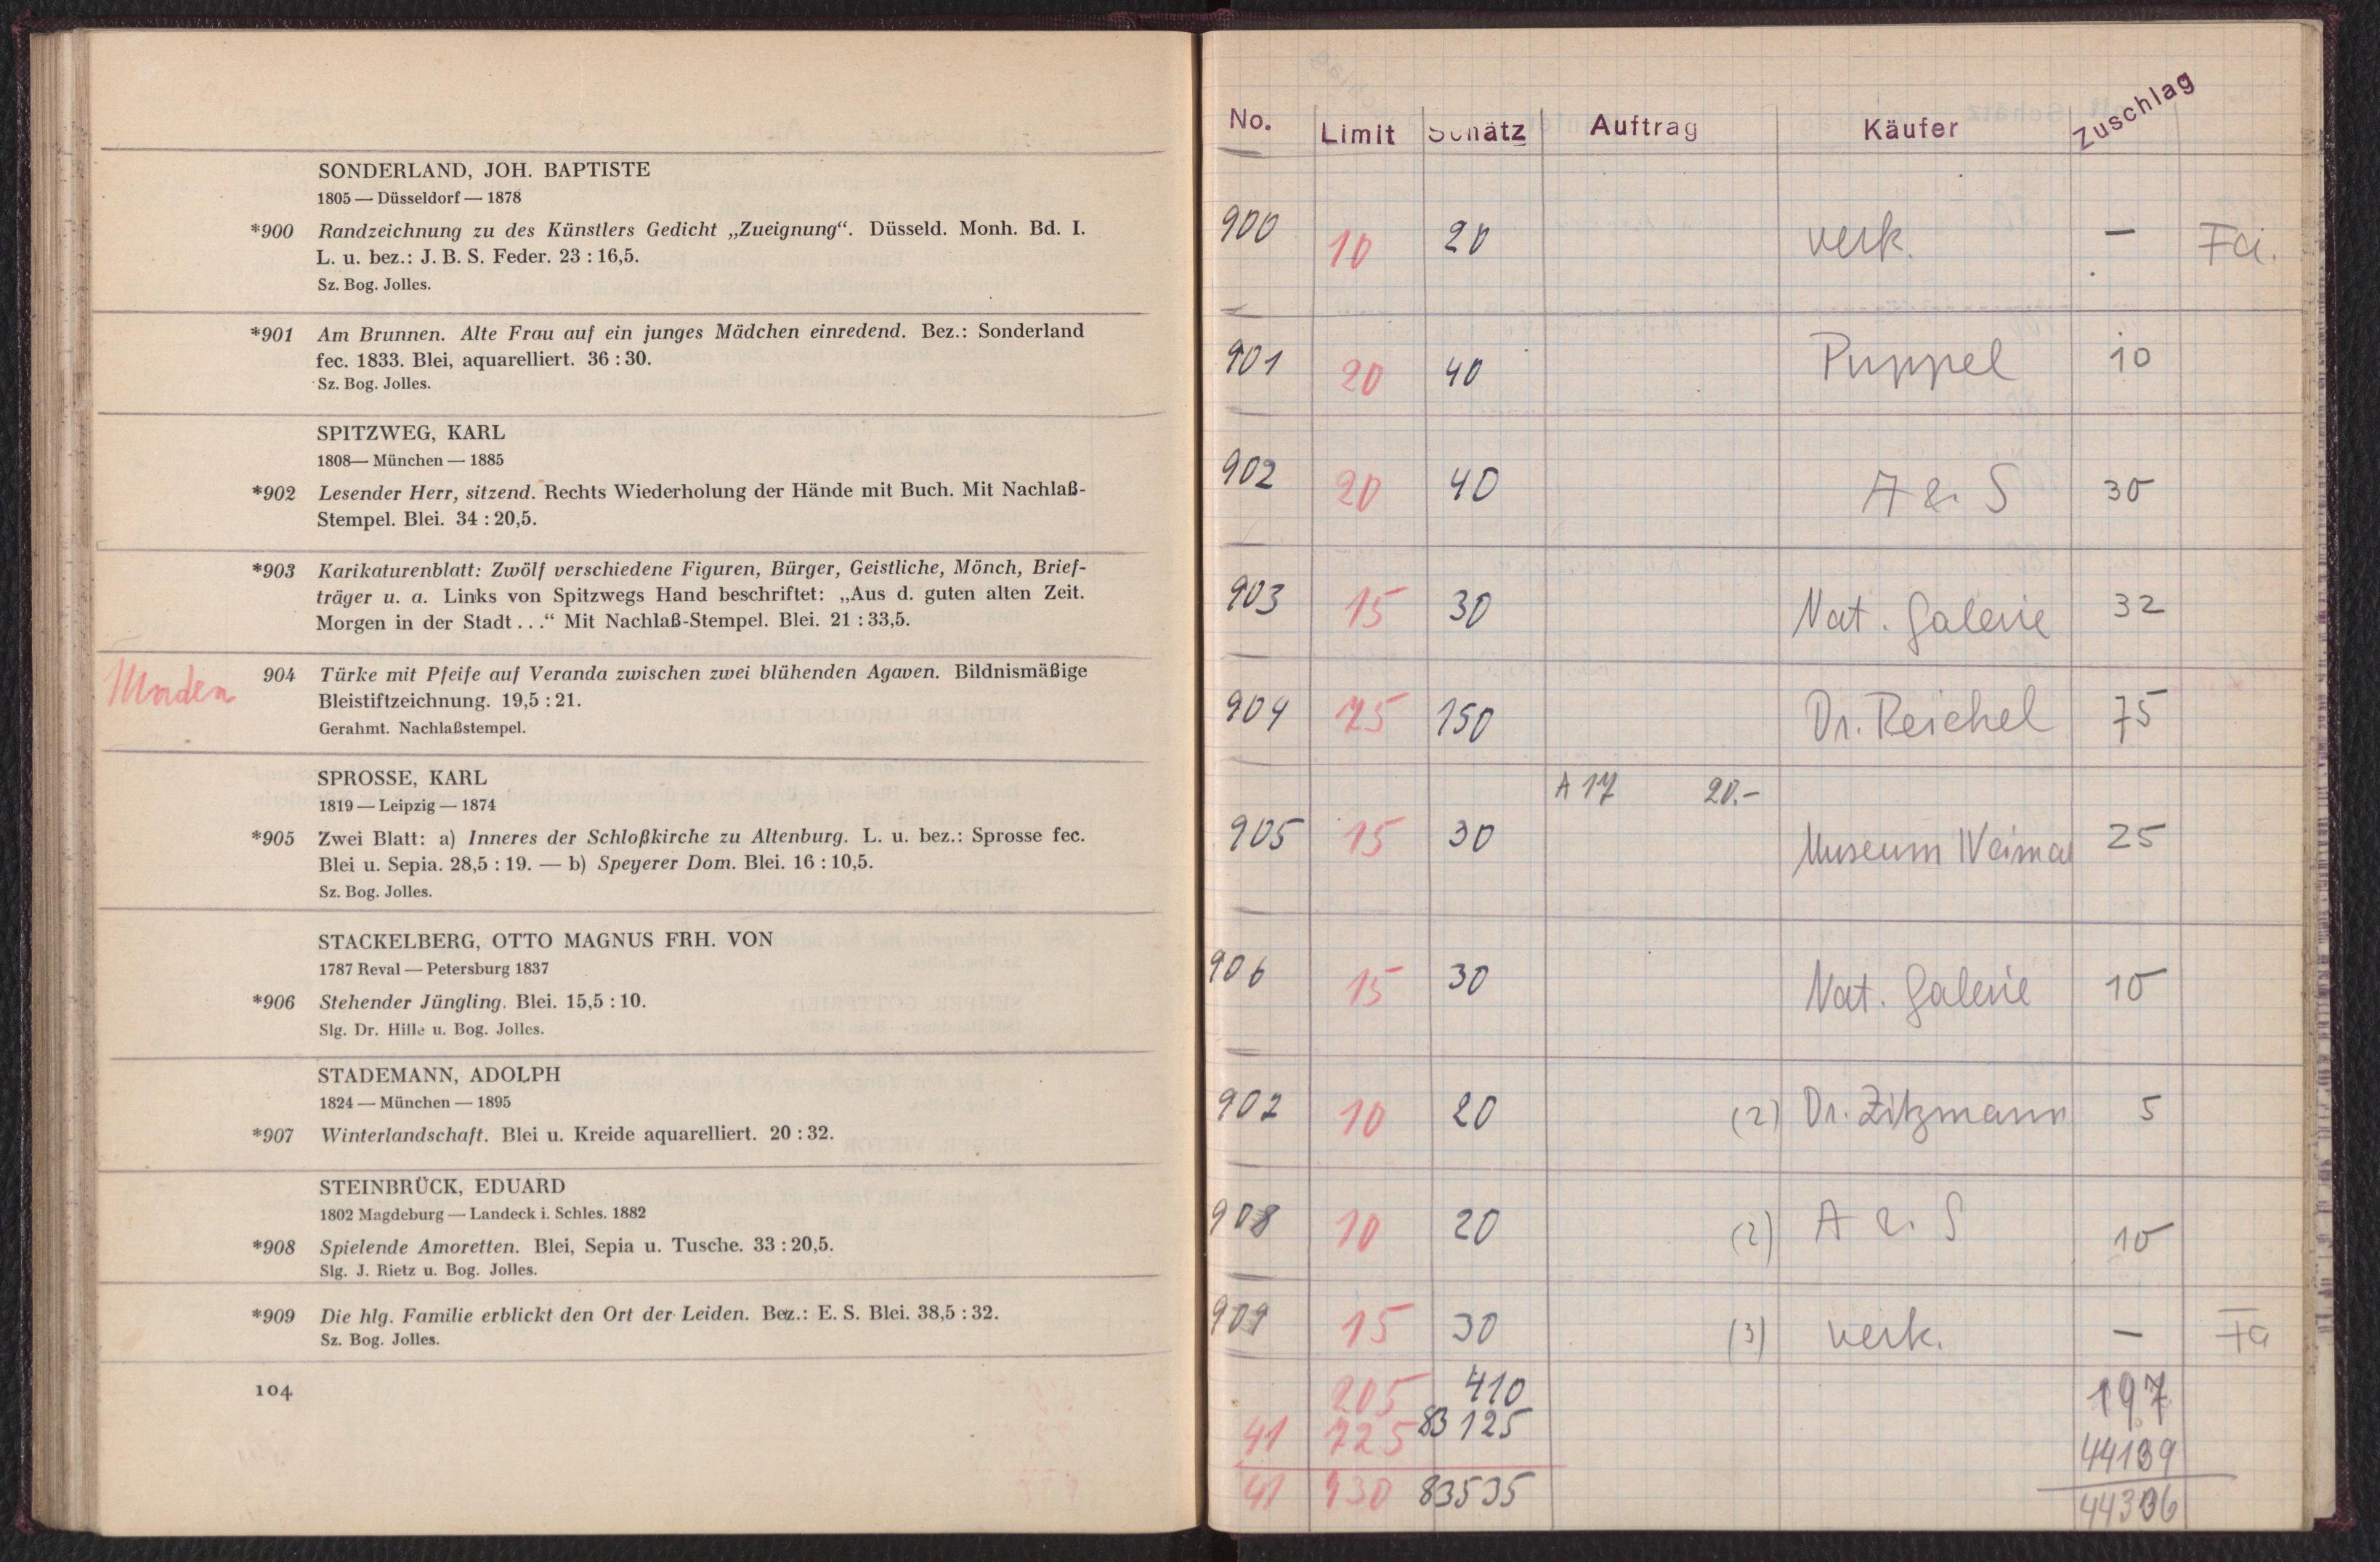 SONDERLAND, JOH. BAPTISTE
1805 — Düsseldorf — 1878
*900 Randzeichnung zu des Künstlers Gedicht „Zueignung“. Düsseld. Monh. Bd. I.
L. u. bez.: J. B. S. Feder. 23 : 16,5.
Sz. Bog. Jolles.
*901 Am Brunnen. Alte Frau auf ein junges Mädchen einredend. Bez.: Sonderland
fec. 1833. Blei, aquarelliert. 36 : 30.
Sz. Bog. Jolles.
SPITZWEG, KARL
1808— München — 1885
*902 Lesender Herr, sitzend. Rechts Wiederholung der Hände mit Buch. Mit Nachlaß-
Stempel. Blei. 34 : 20,5.
*903 Karikaturenblatt: Zwölf verschiedene Figuren, Bürger, Geistliche, Mönch, Brief-
träger u. a. Links von Spitzwegs Hand beschriftet: „Aus d. guten alten Zeit.
Morgen in der Stadt . . .“ Mit Nachlaß-Stempel. Blei. 21 : 33,5.
904 Türke mit Pfeife auf Veranda zwischen zwei blühenden Agaven. Bildnismäßige
Bleistiftzeichnung. 19,5 : 21.
Gerahmt. Nachlaßstempel.
SPROSSE, KARL
1819 — Leipzig — 1874
*905 Zwei Blatt: a) Inneres der Schloßkirche zu Altenburg. L. u. bez.: Sprosse fec.
Blei u. Sepia. 28,5 : 19. — b) Speyerer Dom. Blei. 16 : 10,5.
Sz. Bog. Jolles.
STACKELBERG, OTTO MAGNUS FRH. VON
1787 Reval — Petersburg 1837
*906 Stehender Jüngling. Blei. 15,5 : 10.
Slg. Dr. Hille u. Bog. Jolles.
STADEMANN, ADOLPH
1824 — München — 1895
*907 Winterlandschaft. Blei u. Kreide aquarelliert. 20 : 32.
STEINBRÜCK, EDUARD
1802 Magdeburg — Landeck i. Schles. 1882
*908 Spielende Amoretten. Blei, Sepia u. Tusche. 33 : 20,5.
Slg. J. Rietz u. Bog. Jolles.
*909 Die hlg. Familie erblickt den Ort der Leiden. Bez.: E. S. Blei. 38,5 : 32.
Sz. Bog. Jolles.
104
No. Limit Schätz Auftrag Käufer Zuschlag
900 10 20 verk. —
901 20 40 Puppel 10
902 20 40 A & S 30
903 15 30 Nat. Galerie 32
904 75 150 Dr. Reichel 75
A 17 20.-
905 15 30 Museum Weimar 25
906 15 30 Nat. Galerie 10
907 10 20 (2) Dr. Zitzmann 5
908 10 20 (2) A & S 10
909 15 30 (3) verk. — Fa
205 410 197
41 725 83125 44139
41 930 83535 44336